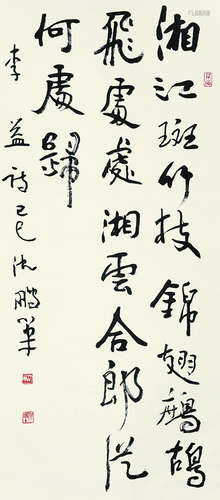 湘江斑竹枝錦翅鷓鴣
飛處處湘雲合郎從
何處歸
李益詩己巳沈鵬筆